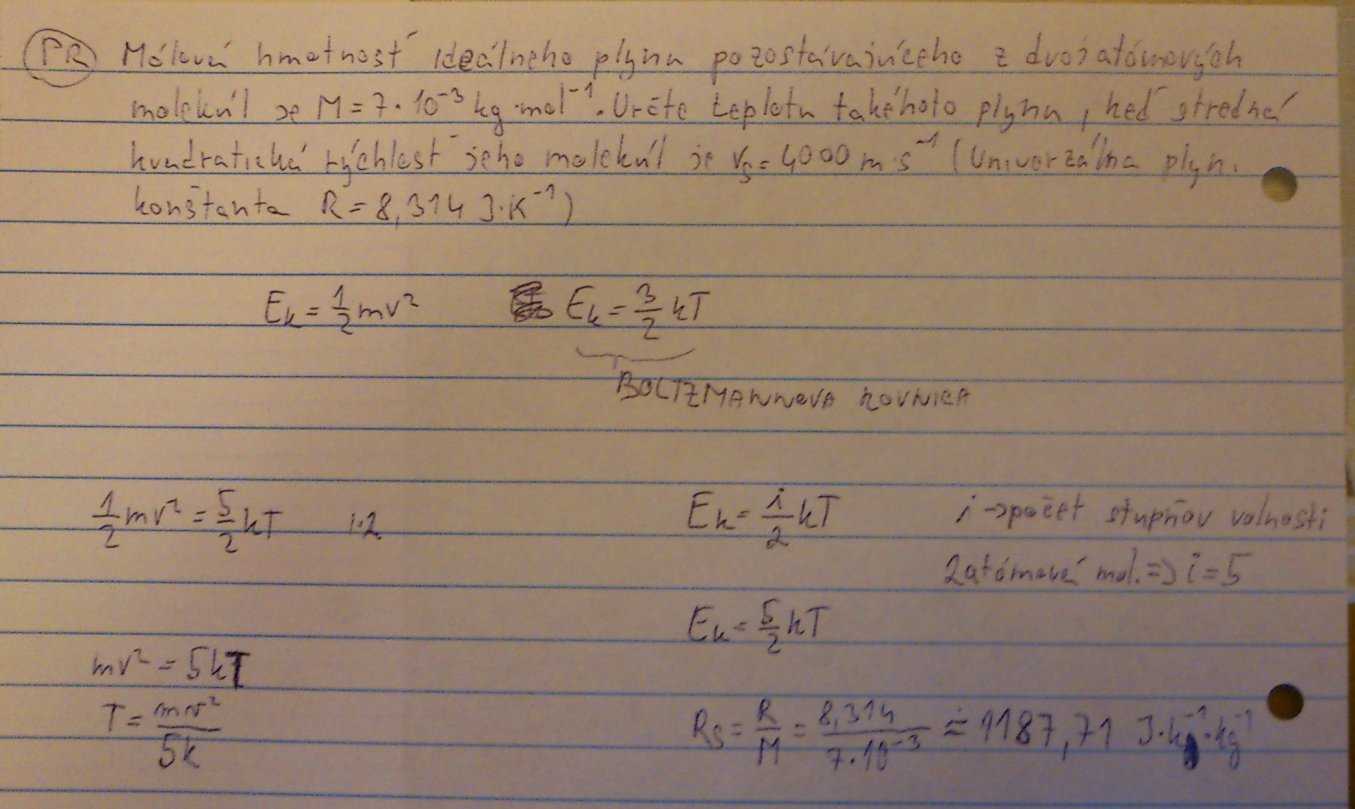 PR Mólová hmotnosť ideálneho plynu pozostávajúceho z dvojatómových
molekúl je M = 7·10⁻³ kg·mol⁻¹. Určte teplotu takéhoto plynu, keď stredná
kvadratická rýchlosť jeho molekúl je vₛ = 4000 m·s⁻¹ (Univerzálna plyn.
konštanta R = 8,314 J·K⁻¹)
Eₖ = 1/2 mv² Eₖ = 3/2 kT
BOLTZMANNOVA ROVNICA
1/2 mv² = 5/2 kT /·2 Eₖ = i/2 kT i → počet stupňov volnosti
2atómová mol. => i = 5
Eₖ = 5/2 kT
mv² = 5kT
T = mv²/5k Rₛ = R/M = 8,314/7·10⁻³ ≐ 1187,71 J·k⁻¹·kg⁻¹